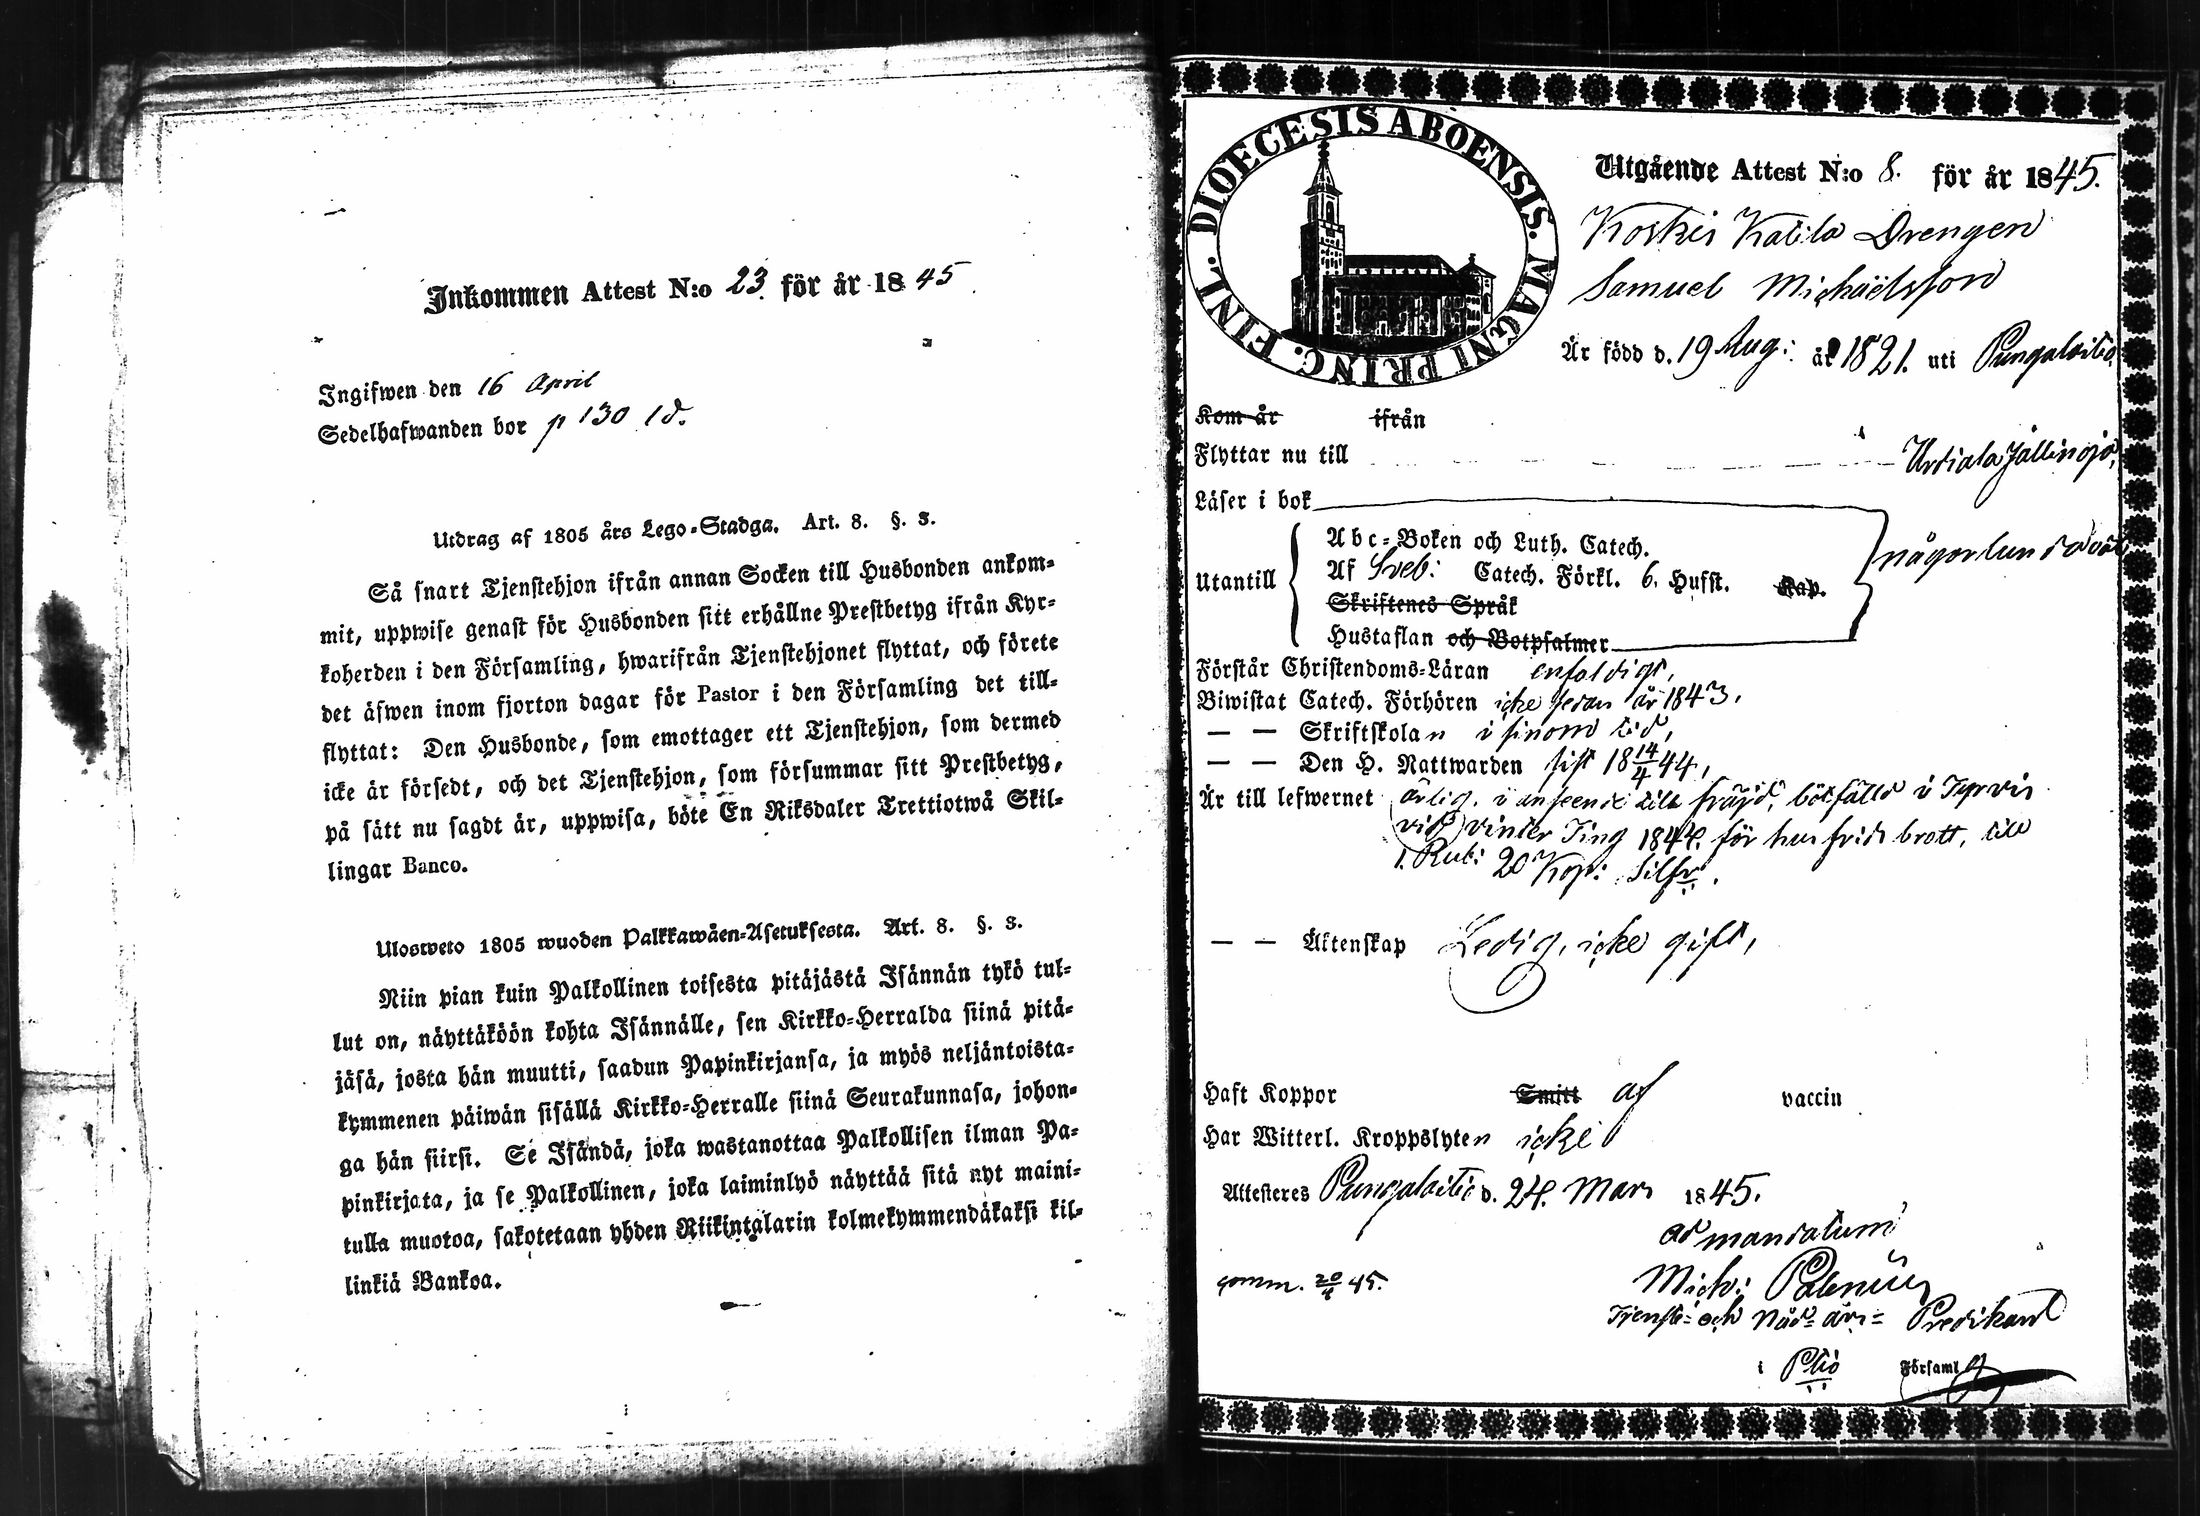 Inkommen Attest N:o 23. för år 1845
Ingifwen den 16 April
Sedelhafwanden bor p 130 1d.
Utdrag af 1805 års Lego-Stadga. Art. 8. §. 3.
Så snart Tjenstehjon ifrån annan Socken till Husbonden ankom-
mit, uppwise genast för Husbonden sitt erhållne Prestbetyg ifrån Kyr-
koherden i den Församling, hwarifrån Tjenstehjonet flyttat, och förete
det äfwen inom fjorton dagar för Pastor i den Församling det till-
flyttat: Den Husbonde, som emottager ett Tjenstehjon, som dermed
icke är försedt, och det Tjenstehjon, som försummar sitt Prestbetyg,
på sätt nu sagdt är, uppwisa, böte En Riksdaler Trettiotwå Skil-
lingar Banco.
Ulosweto 1805 wuoden Palkkawäen-Asetuksesta. Art. 8. §. 3.
Niin pian kuin Palkollinen toisesta pitäjästä Isännän tykö tul-
lut on, näyttäköön kohta Isännälle, sen Kirkko-Herralda siinä pitä-
jäsä, josta hän muutti, saadun Papinkirjansa, ja myös neljäntoista-
kymmenen päiwän sisällä Kirkko-Herralle siinä Seurakunnasa, johon-
ga hän siirsi. Se Isändä, joka wastanottaa Palkollisen ilman Pa-
pinkirjata, ja se Palkollinen, joka laiminlyö näyttää sitä nyt maini-
tulla muotoa, sakotetaan yhden Riikintalarin kolmekymmendäkaksi kil-
linkiä Bankoa.
DIOECESIS ABOENSIS. MAGNI PRINC. FINL.
Utgående Attest N:o 8. för år 1845.
Koskis Katila Drengen
Samuel Michaëlsson
Är född d. 19 Aug: år 1821. uti Pungalaitio,
Kom år ifrån
Flyttar nu till Urdiala Jällinoja,
Läser i bok
Utantill
Abc-Boken och Luth. Catech.
Af Sveb: Catech. Förkl. 6. Hufst. Kap.
Skriftenes Språk
Hustaflan och Botpsalmer
någorlunda
Förstår Christendoms-Läran enfaldigt,
Biwistat Catech. Förhören icke sedan år 1843,
— — Skriftskolan i sinom tid,
— — Den H. Nattwarden sist 18 14/4 44,
Är till lefwernet ärlig, i anseende till frägd, bötfälld i Typvis
vid vinter Ting 1844. för husfrids brott, till
1. Rub: 20 Kop: Silfv.
— — Äktenskap Ledig, icke gift,
Haft Koppor Smitt af vaccin
Har Witterl. Kroppslyten icke
Attesteres Pungalaitio d. 24. Mars 1845.
ad mandatum
Mich:
Tjenst- och Nåd-års- Predikant
i Pltio Församlg
comm. 20/4 45.